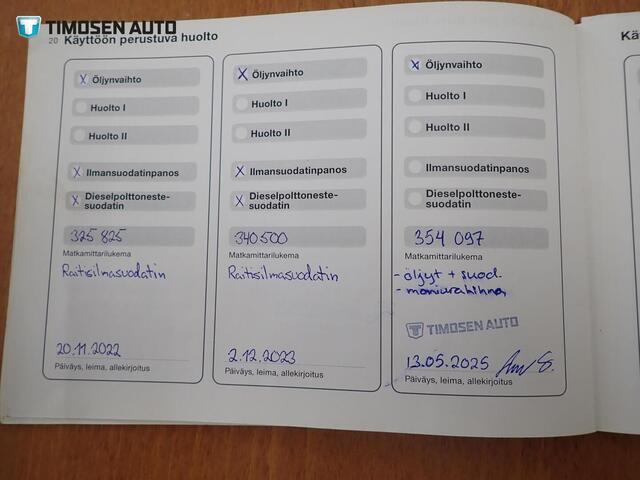 TIMOSEN AUTO
20 Käyttöön perustuva huolto
X Öljynvaihto
Huolto I
Huolto II
X Ilmansuodatinpanos
X Dieselpolttoneste-
suodatin
325 825
Matkamittarilukema
Raitisilmasuodatin
20.11.2022
Päiväys, leima, allekirjoitus
X Öljynvaihto
Huolto I
Huolto II
X Ilmansuodatinpanos
X Dieselpolttoneste-
suodatin
340 500
Matkamittarilukema
Raitisilmasuodatin
2.12.2023
Päiväys, leima, allekirjoitus
X Öljynvaihto
Huolto I
Huolto II
Ilmansuodatinpanos
Dieselpolttoneste-
suodatin
354 097
Matkamittarilukema
- öljyt + suod.
- moniurahihna
TIMOSEN AUTO
13.05.2025
Päiväys, leima, allekirjoitus
Kä